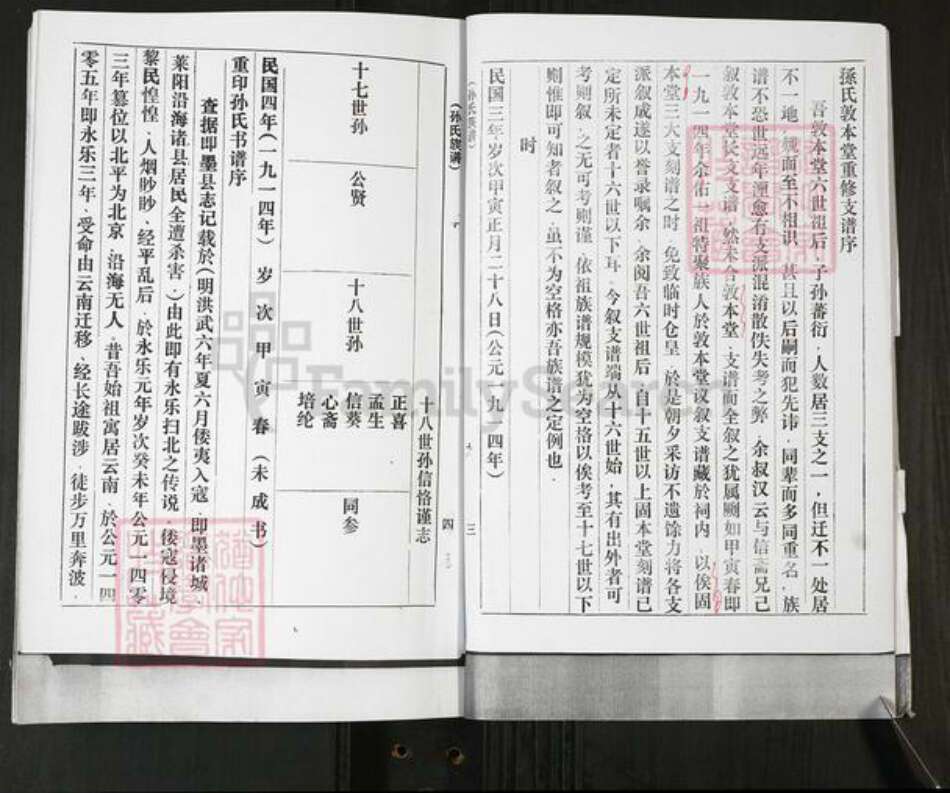 孫氏敦本堂重修支谱序
吾敦本堂六世祖后，子孙蕃衍，人数居三支之一，但迁不一处居
不一地，觌面至不相识，甚且以后嗣而犯先讳，同辈而多同重名，族
谱不恐世远年湮愈有支派混淆散佚失考之弊，余叔汉云与信斋兄己
叙敦本堂长支支谱，然未合敦本堂，支谱而全叙之犹属阙如甲寅春即
一九一四年余佑一祖特聚族人於敦本堂议叙支谱藏於祠内，以俟固
本堂三大支刻谱之时，免致临时仓皇，於是朝夕采访不遗馀力将各支
派叙成遂以誉录嘱余，余阅吾六世祖后，自十五世以上固本堂刻谱已
定所未定者十六世以下耳，今叙支谱端从十六世始，其有出外者可
考则叙，之无可考则谨，依祖族谱规模犹为空格以俟考至十七世以下
则惟即可知者叙之，虽不为空格亦吾族谱之定例也．
时
民国三年岁次甲寅正月二十八日（公元一九一四年）
三
（孙氏族谱）
四
十八世孙信恪谨志
十七世孙 公贤 十八世孙 正喜 孟生 信葵 心斋 培纶 同参
民国四年（一九一四年）岁次甲寅春（未成书）
重印孙氏书谱序
查据即墨县志记载於（明洪武六年夏六月倭夷入寇，即墨诸城，
莱阳沿海诸县居民全遭杀害．）由此即有永乐扫北之传说，倭寇侵境
黎民惶惶，人烟眇眇，经平乱后，於永乐元年岁次癸未年公元一四零
三年篡位以北平为北京，沿海无人，昔吾始祖寓居云南，於公元一四
零五年即永乐三年，受命由云南迁移，经长途跋涉，徒步万里奔波，
FamilySearch